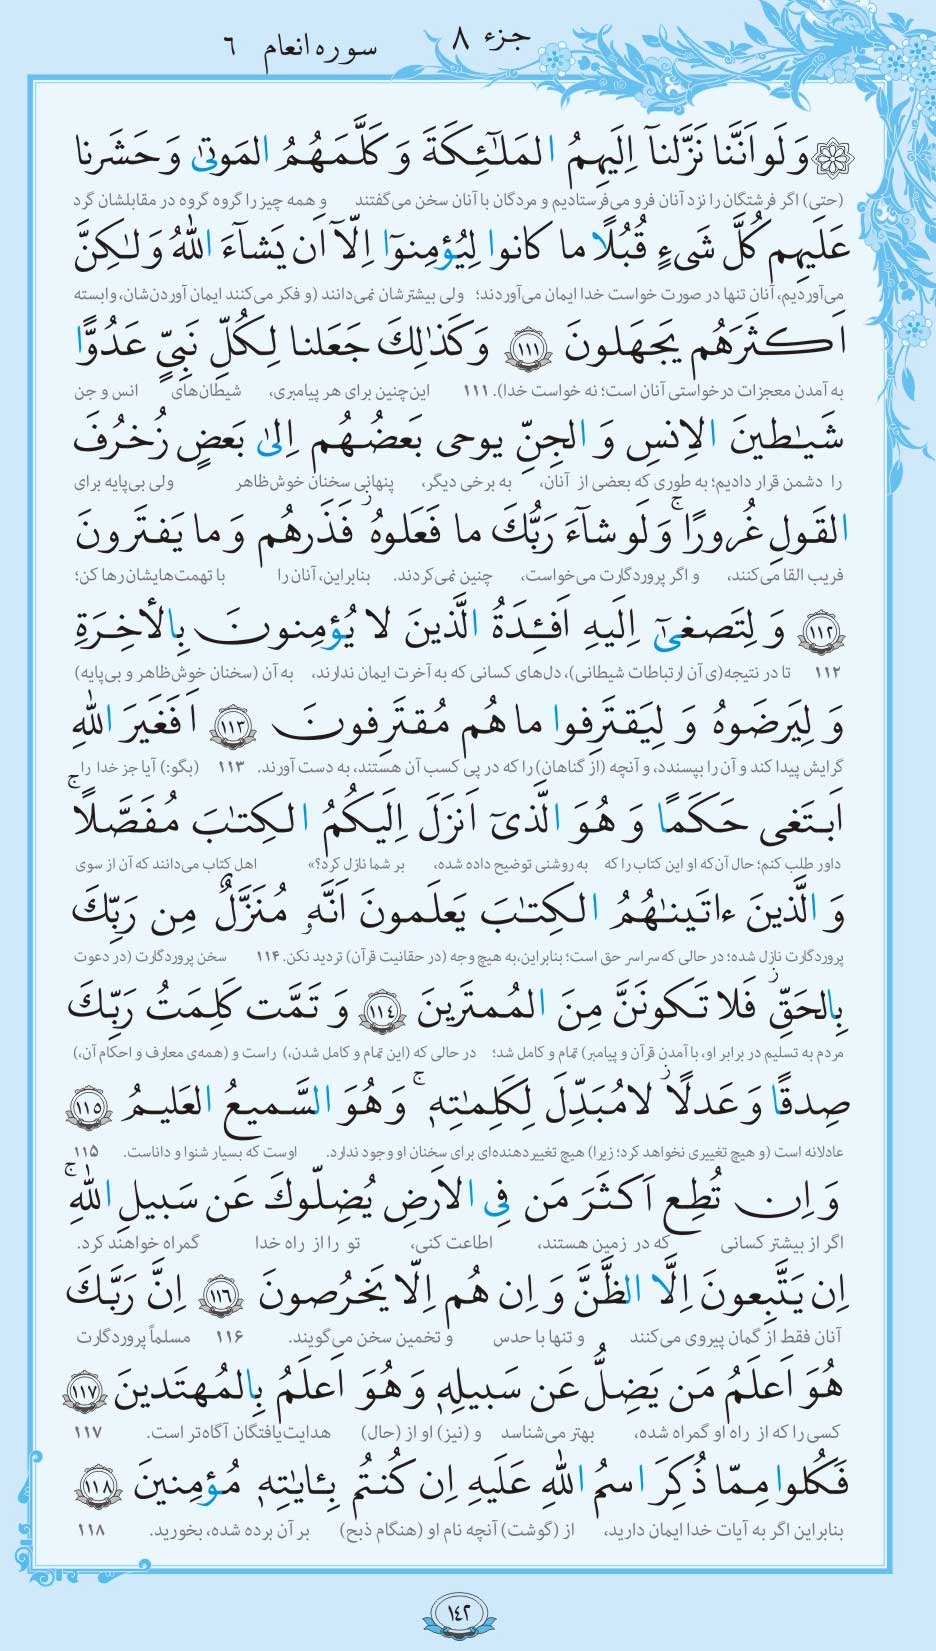 جزء ۸
سوره انعام ۶
وَلَو اَنَّنا نَزَّلنآ اِلَيهِمُ المَلٰٓئِكَةَ وَ كَلَّمَهُمُ المَوتىٰ وَ حَشَرنا
(حتی) اگر فرشتگان را نزد آنان فرو می‌فرستادیم و مردگان با آنان سخن می‌گفتند و همه چیز را گروه گروه در مقابلشان گرد
عَلَيهِم كُلَّ شَیءٍ قُبُلًا ما كانوا لِيُؤمِنوٓا اِلّآ اَن يَشآءَ اللّٰهُ وَ لٰكِنَّ
می‌آوردیم، آنان تنها در صورت خواست خدا ایمان می‌آوردند؛ ولی بیشترشان نمی‌دانند (و فکر می‌کنند ایمان آوردن‌شان، وابسته
اَكثَرَهُم يَجهَلونَ ﴿١١١﴾ وَ كَذٰلِكَ جَعَلنا لِكُلِّ نَبِیٍّ عَدُوًّا
به آمدن معجزات درخواستی آنان است؛ نه خواست خدا). ۱۱۱ این‌چنین برای هر پیامبری، شیطان‌های انس و جن
شَيٰطينَ الاِنسِ وَ الجِنِّ يوحى بَعضُهُم اِلىٰ بَعضٍ زُخرُفَ
را دشمن قرار دادیم؛ به طوری که بعضی از آنان، به برخی دیگر، پنهانی سخنان خوش‌ظاهر ولی بی‌پایه برای
القَولِ غُرورًا ۚ وَ لَو شآءَ رَبُّكَ ما فَعَلوهُ ۖ فَذَرهُم وَ ما يَفتَرونَ
فریب القا می‌کنند، و اگر پروردگارت می‌خواست، چنین نمی‌کردند. بنابراین، آنان را با تهمت‌هایشان رها کن؛
﴿١١٢﴾ وَ لِتَصغىٰٓ اِلَيهِ اَفـِٔدَةُ الَّذينَ لا يُؤمِنونَ بِالأخِرَةِ
۱۱۲ تا در نتیجه(ی آن ارتباطات شیطانی)، دل‌های کسانی که به آخرت ایمان ندارند، به آن (سخنان خوش‌ظاهر و بی‌پایه)
وَ لِيَرضَوهُ وَ لِيَقتَرِفوا ما هُم مُقتَرِفونَ ﴿١١٣﴾ اَفَغَيرَ اللّٰهِ
گرایش پیدا کند و آن را بپسندد، و آنچه (از گناهان) را که در پی کسب آن هستند، به دست آورند. ۱۱۳ (بگو:) آیا جز خدا را
اَبتَغى حَكَمًا وَ هُوَ الَّذىٓ اَنزَلَ اِلَيكُمُ الكِتٰبَ مُفَصَّلًا ۚ
داور طلب کنم؛ حال آن‌که او این کتاب را که به روشنی توضیح داده شده، بر شما نازل کرد؟» اهل کتاب می‌دانند که آن از سوی
وَ الَّذينَ ءاتَينٰهُمُ الكِتٰبَ يَعلَمونَ اَنَّهٗ مُنَزَّلٌ مِن رَبِّكَ
پروردگارت نازل شده؛ در حالی که سراسر حق است؛ بنابراین، به هیچ وجه (در حقانیت قرآن) تردید نکن. ۱۱۴ سخن پروردگارت (در دعوت
بِالحَقِّ ۖ فَلا تَكونَنَّ مِنَ المُمتَرينَ ﴿١١٤﴾ وَ تَمَّت كَلِمَتُ رَبِّكَ
مردم به تسلیم در برابر او، با آمدن قرآن و پیامبر) تمام و کامل شد؛ در حالی که (این تمام و کامل شدن،) راست و (همه‌ی معارف و احکام آن،)
صِدقًا وَ عَدلًا ۖ لا مُبَدِّلَ لِكَلِمٰتِهٖ ۚ وَ هُوَ السَّميعُ العَليمُ ﴿١١٥﴾
عادلانه است (و هیچ تغییری نخواهد کرد؛ زیرا) هیچ تغییردهنده‌ای برای سخنان او وجود ندارد. اوست که بسیار شنوا و داناست. ۱۱۵
وَ اِن تُطِع اَكثَرَ مَن فِى الاَرضِ يُضِلّوكَ عَن سَبيلِ اللّٰهِ ۚ
اگر از بیشتر کسانی که در زمین هستند، اطاعت کنی، تو را از راه خدا گمراه خواهند کرد.
اِن يَتَّبِعونَ اِلَّا الظَّنَّ وَ اِن هُم اِلّا يَخرُصونَ ﴿١١٦﴾ اِنَّ رَبَّكَ
آنان فقط از گمان پیروی می‌کنند و تنها با حدس و تخمین سخن می‌گویند. ۱۱۶ مسلماً پروردگارت
هُوَ اَعلَمُ مَن يَضِلُّ عَن سَبيلِهٖ وَ هُوَ اَعلَمُ بِالمُهتَدينَ ﴿١١٧﴾
کسی را که از راه او گمراه شده، بهتر می‌شناسد و (نیز) او از (حال) هدایت‌یافتگان آگاه‌تر است. ۱۱۷
فَكُلوا مِمّا ذُكِرَ اسمُ اللّٰهِ عَلَيهِ اِن كُنتُم بِـٔايٰتِهٖ مُؤمِنينَ ﴿١١٨﴾
بنابراین اگر به آیات خدا ایمان دارید، از (گوشت) آنچه نام او (هنگام ذبح) بر آن برده شده، بخورید. ۱۱۸
١٤٢